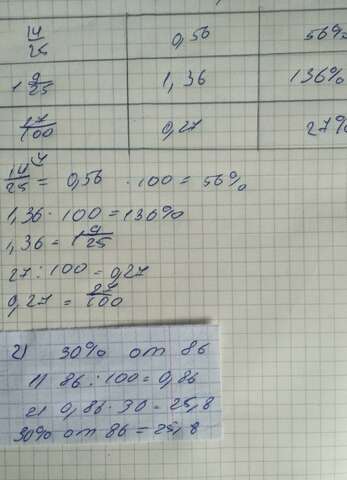 14/25 0,56 56%
1 9/25 1,36 136%
17/100 0,27 27%
14/25 = 0,56 · 100 = 56%
1,36 · 100 = 136%
1,36 = 1 9/25
27 : 100 = 0,27
0,27 = 27/100
2) 30% от 86
1) 86 : 100 = 0,86
2) 0,86 · 30 = 25,8
30% от 86 = 25,8